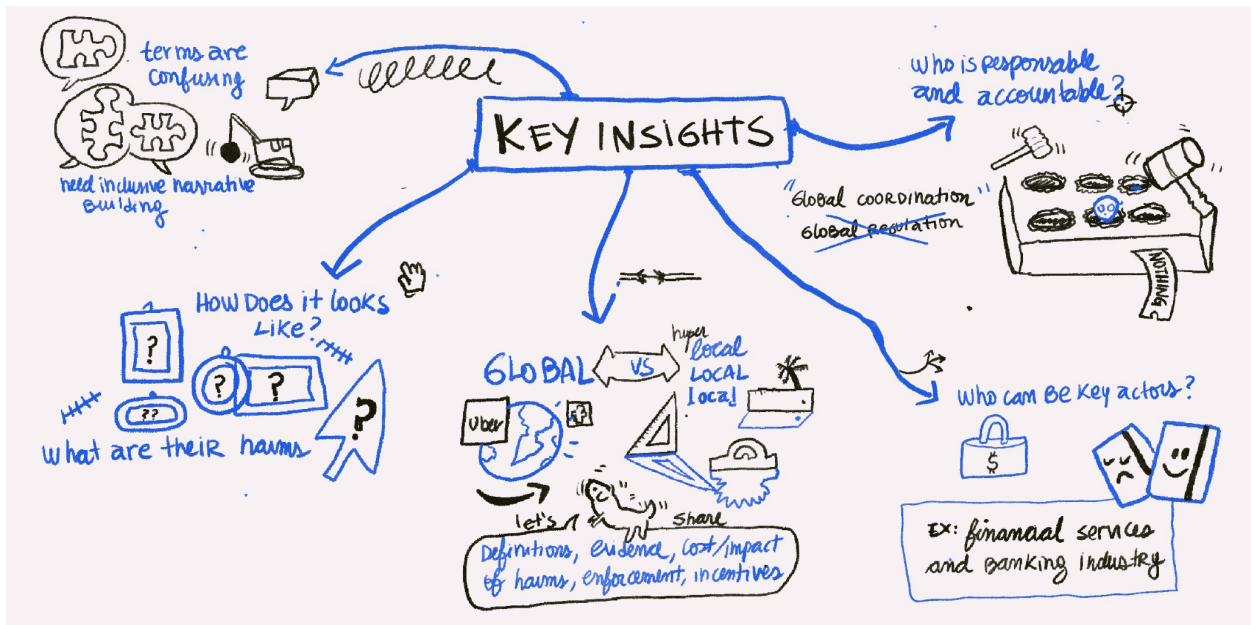 KEY INSIGHTS
terms are
confusing
need inclusive narrative
Building
Who is responsable
and accountable?
"Global coordination"
Global Regulation
NOTHING
How Does it looks
Like?
?
?
?
??
?
What are their harms
GLOBAL
VS
hyper
local
LOCAL
local
Uber
let's share
Definitions, evidence, cost/impact
of harms, enforcement, incentives
Who can Be key actors?
$
EX: financial services
and Banking industry